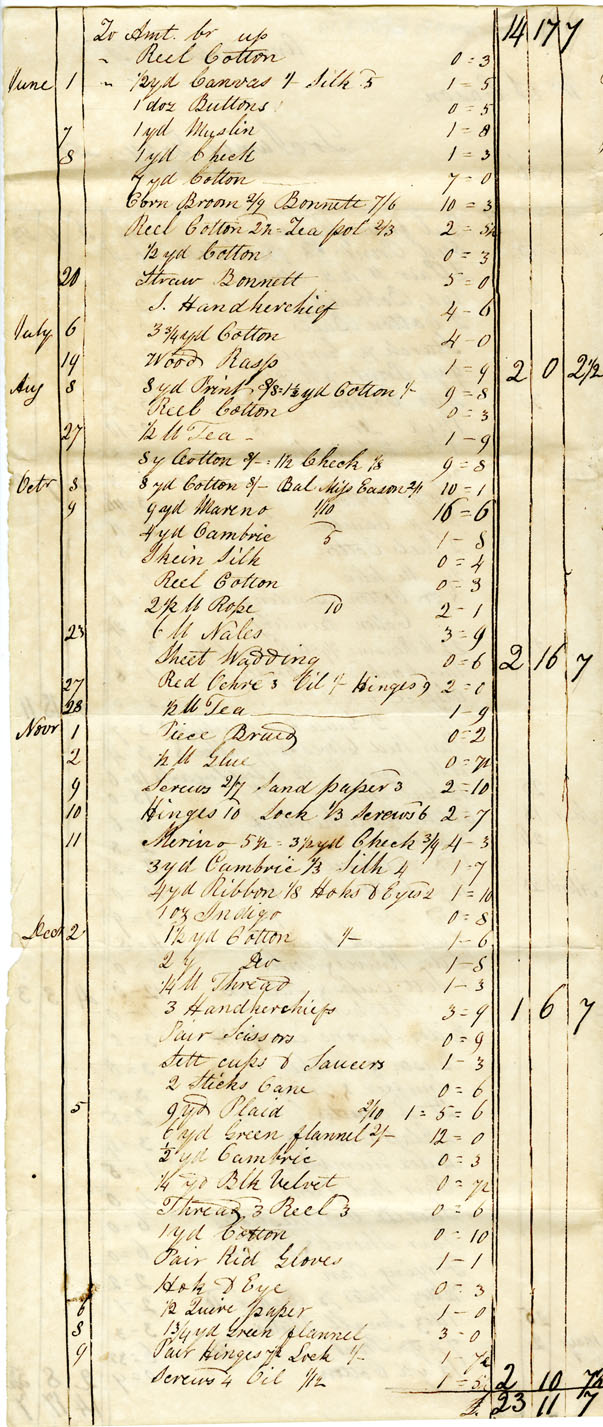 To Amt. br up 14 17 7
" Reel Cotton 0=3
June 1 " 1/2 yd Canvas 1/- Silk 5 1=5
1 doz Buttons 0=5
7 1 yd Muslin 1=8
8 1 yd Check 1=3
7 yd Cotton 7=0
Corn Broom 2/9 Bonnett 7/6 10=3
Reel Cotton 2½ = Tea pot 2/3 2=5½
1/2 yd Cotton 0=3
20 Straw Bonnett 5=0
S. Handkerchief 4-6
July 6 3 3/4 yd Cotton 4-0
14 Wood Rasp 1=9 2 0 2 1/2
Aug 8 8 yd Print 8/8 = 1 1/2 yd Cotton 1/- 9=8
Reel Cotton 0=3
27 1/2 lb Tea - 1-9
8 y Cotton 8/- = 1 1/2 Check 1/8 9=8
Octr 8 8 yd Cotton 8/- Bal Miss Eason 2/1 10=1
9 9 yd Mareno 1/10 16=6
4 yd Cambric 5 1-8
Skein Silk 0=4
Reel Cotton 0=3
2 1/2 lb Rope 10 2-1
23 6 lb Nales 3=9
Sheet Wadding 0=6 2 16 7
27 Red Ochre 3 Oil 1/- Hinges 9 2=0
28 1/2 lb Tea 1-9
Novr 1 Piece Braid 0=2
2 1/2 lb Glue 0=7½
9 Screws 2/7 Sand paper 3 2=10
10 Hinges 10 Lock 1/3 Screws 6 2=7
11 Merino 5 1/2 = 3 1/2 yd Check 3/9 4-3
3 yd Cambric 1/3 Silk 4 1-7
4 yd Ribbon 1/8 Hoks & Eyes 2 1=10
1 oz Indigo 0=8
Decr 2 1 1/2 yd Cotton 1/- 1-6
2 y Do 1-8
1/4 lb Thread 1-3
3 Handkerchiefs 3=9 1 6 7
Pair Scissors 0=9
Sett cups & Saucers 1-3
2 Sticks Cane 0=6
5 9 yd Plaid 2/10 1=5=6
6 yd Green flannel 2/- 12=0
1/2 yd Cambric 0=3
1/4 yd Blk Velvet 0=7½
Thread 3 Reel 3 0=6
1 yd Cotton 0=10
Pair Kid Gloves 1-1
Hok & Eye 0=3
6 1/2 Quire paper 1-0
8 1 3/4 yd Green flannel 3=0
9 Pair Hinges 7½ Lock 1/- 1-7½
Screws 4 Oil 1=5 2 10 7½
£ 23 11 7